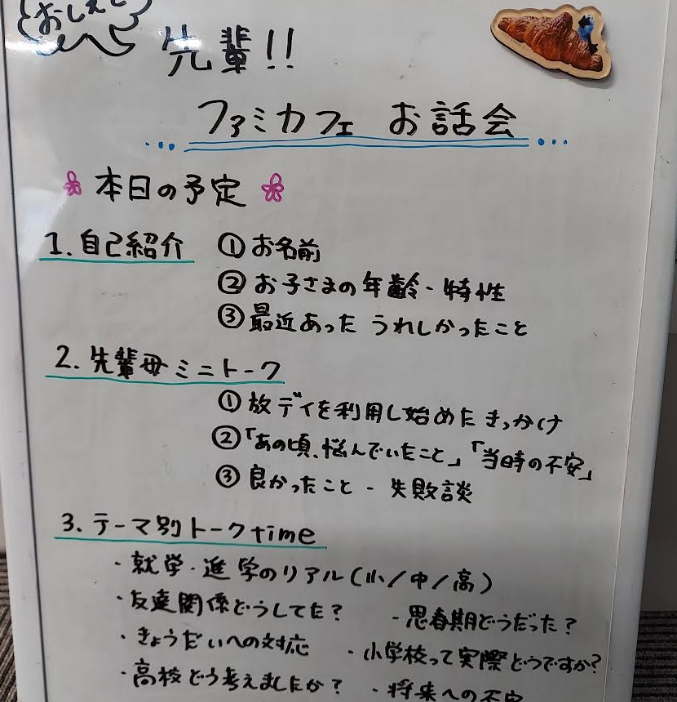 おしえて
先輩!!
ファミカフェ お話会
本日の予定
1. 自己紹介 ① お名前
② お子さまの年齢・特性
③ 最近あった うれしかったこと
2. 先輩母ミニトーク
① 放デイを利用し始めたきっかけ
②「あの頃、悩んでいたこと」「当時の不安」
③ 良かったこと - 失敗談
3. テーマ別トークtime
・就学・進学のリアル(小/中/高)
・友達関係どうしてた? ・思春期どうだった?
・きょうだいへの対応 ・小学校って実際どうですか?
・高校どう考えましたか? ・将来への不安